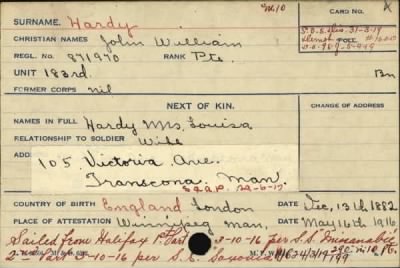 M.10
SURNAME. Hardy CARD NO.
CHRISTIAN NAMES John William S.O.S. Dis. 31-3-19
REGL. NO. 871970 RANK Pte. Demob
UNIT 183rd. Bn
FORMER CORPS nil
NEXT OF KIN. CHANGE OF ADDRESS
NAMES IN FULL Hardy Mrs. Louisa
RELATIONSHIP TO SOLDIER Wife
ADD
105 Victoria Ave.
Transcona Man
COUNTRY OF BIRTH England London DATE Dec, 13th 1882
PLACE OF ATTESTATION Winnipeg Man. DATE May 16th 1916
Sailed from Halifax 1st Part 3-10-16 per S.S. Missanabie
2 Part -10-16 per S.S. Saxonia